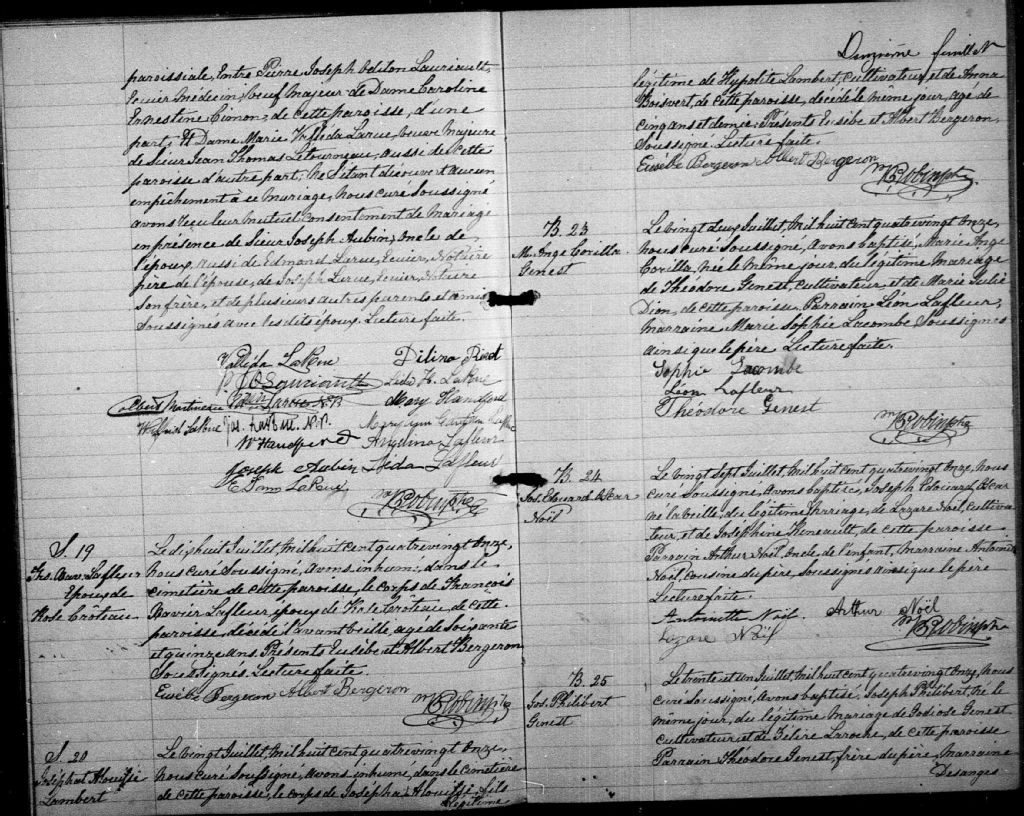 paroissiale, Entre Pierre Joseph Odilon Lauriault,
Ecuier Médecin, veuf majeur de Dame Caroline
Ernestine Cimon, de cette paroisse, d'une
part, Et Dame Marie Valléda Larue, veuve majeure
de Sieur Jean Thomas Létourneau, aussi de cette
paroisse d'autre part, Ne s'étant découvert aucun
empêchement à ce mariage, Nous curé Soussigné
avons reçu leur mutuel consentement de Mariage
en présence de Sieur Joseph Aubin, Oncle de
l'époux, aussi de Edmond Larue, Ecuier, Notaire
père de l'épouse, de Joseph Larue, Ecuier, Notaire
son frère, et de plusieurs autres parents et amis
Soussignés avec les dits époux. Lecture faite.
Valléda LaRue
Lida H. LaRue
Mary Handford
Albert Martineau
Jos. LaRue. N.P.
Angelina Lafleur
Joseph Aubin Léda Lafleur
S. 19
Frs. Xav. Lafleur
Epoux de
Rose Crôteau
Le dix huit Juillet, Mil huit cent quatre vingt Onze,
Nous curé Soussigné, avons inhumé dans le
cimetière de cette paroisse, le corps de François
Xavier Lafleur, époux de Rose Croteau, de cette
paroisse décédé l'avant veille, agé de Soixante
et quinze ans. Présents Eusèbe et Albert Bergeron
Soussignés. Lecture faite.
Eusèbe Bergeron Albert Bergeron
S. 20
Lambert
Le vingt Juillet, Mil huit cent quatre vingt Onze,
Nous curé Soussigné, avons inhumé, dans le cimetière
de cette paroisse, le corps de Joseph Alouissi, fils
légitime
feuillet
légitime de Hypolite Lambert, cultivateur, et de Anna
Boisvert, de cette paroisse, décédé le même jour, agé de
cinq ans et demie. Présents Eusèbe et Albert Bergeron,
Soussignés. Lecture faite.
Eusèbe Bergeron Albert Bergeron
B. 23
M. Ange Corilla
Genest
Le vingt deux Juillet, Mil huit cent quatre vingt Onze,
Nous curé Soussigné, avons baptisé, Marie Ange
Corilla, Née le même jour, du légitime mariage
de Théodore Genest, cultivateur, et de Marie Julie
Dion, de cette paroisse. Parrain Léon Lafleur,
Marraine Marie Sophie Lacombe Soussignés
ainsi que le père Lecture faite.
Sophie Lacombe
Léon Lafleur
Théodore Genest
B. 24
Jos. Edouard Oscar
Noël
Le vingt Sept Juillet, Mil huit cent quatre vingt Onze, Nous
curé Soussigné, avons baptisé, Joseph Edouard Oscar
né la veille, du légitime Mariage, de Lazare Noël, cultiva
teur, et de Joséphine Thineault, de cette paroisse
Parrain Arthur Noël Oncle de l'enfant, marraine Antoinette
Noël, cousine du père, Soussignés ainsi que le père
Lecture faite.
Antoinette Noël. Arthur Noël
Lazare Noël
B. 25
Jos. Philibert
Genest
Le trente et un Juillet, Mil huit cent quatre vingt Onze, Nous
curé Soussigné, avons baptisé, Joseph Philibert, Né le
même jour, du légitime Mariage de Genest
cultivateur et de Zélire Laroche, de cette paroisse
Parrain Théodore Genest, frère du père, Marraine
Desanges